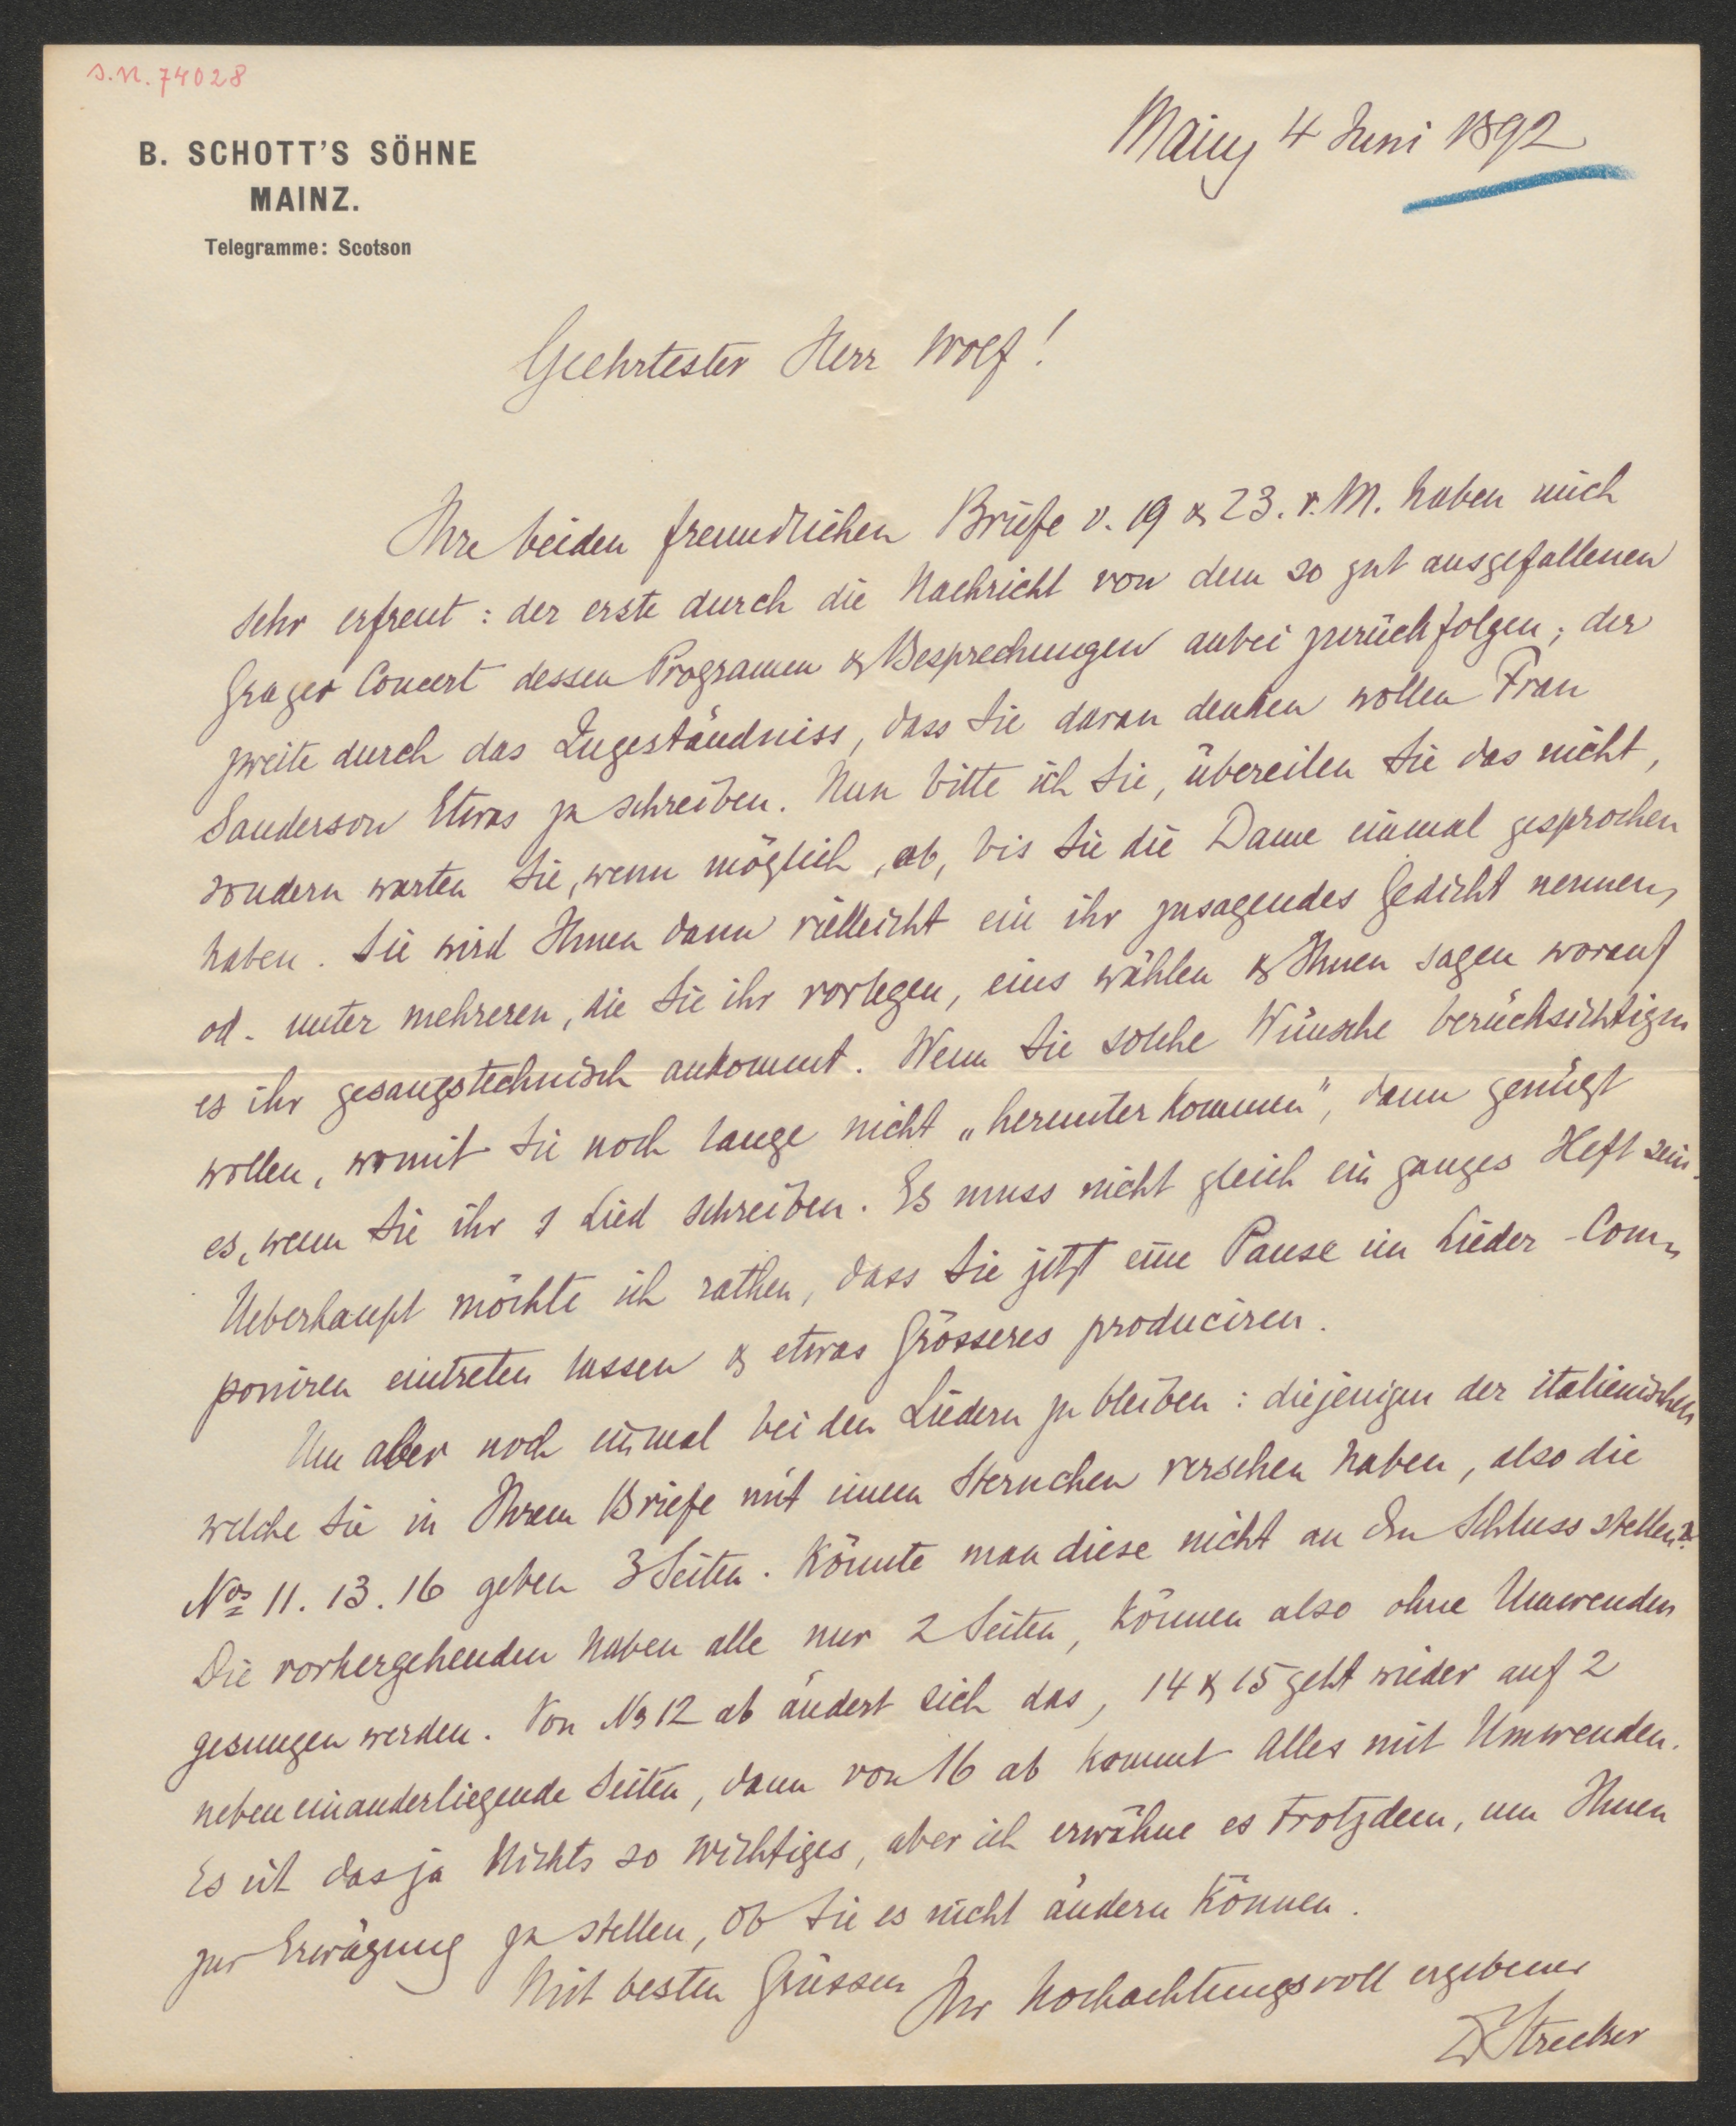 I.N. 74028
B. SCHOTT'S SÖHNE
MAINZ.
Telegramme: Scotson
Mainz 4 Juni 1892
Geehrtester Herr Wolf!
Ihre beiden freundlichen Briefe v. 19 & 23. v. M. haben mich
sehr erfreut: der erste durch die Nachricht von dem so gut ausgefallenen
Grazer Concert dessen Programme & Besprechungen anbei zurückfolgen; der
zweite durch das Zugeständniss, dass Sie daran denken wollen Frau
Sanderson Etwas zu schreiben. Nun bitte ich Sie, übereilen Sie das nicht,
sondern warten Sie, wenn möglich, ab, bis Sie die Dame einmal gesprochen
haben. Sie wird Ihnen dann vielleicht ein ihr zusagendes Gedicht nennen,
od. unter mehreren, die Sie ihr vorlegen, eins wählen & Ihnen sagen worauf
es ihr gesangstechnisch ankommt. Wenn Sie solche Wünsche berücksichtigen
wollen, womit Sie noch lange nicht „herunter kommen", dann genügt
es, wenn Sie ihr 1 Lied schreiben. Es muss nicht gleich ein ganzes Heft sein.
Ueberhaupt möchte ich rathen, dass Sie jetzt eine Pause im Lieder-Com-
poniren eintreten lassen & etwas Grösseres produciren.
Um aber noch einmal bei den Liedern zu bleiben: diejenigen der italienischen
welche Sie in Ihrem Briefe mit einem Sternchen versehen haben, also die
Nos 11. 13. 16 geben 3 Seiten. Könnte man diese nicht an den Schluss stellen?
Die vorhergehenden haben alle nur 2 Seiten, können also ohne Umwenden
gesungen werden. Von No 12 ab ändert sich das, 14 & 15 geht wieder auf 2
nebeneinanderliegende Seiten, dann von 16 ab kommt Alles mit Umwenden.
Es ist das ja Nichts so wichtiges, aber ich erwähne es trotzdem, um Ihnen
zur Erwägung zu stellen, ob Sie es nicht ändern können.
Mit besten Grüssen Ihr hochachtungsvoll ergebener
Dr Strecker